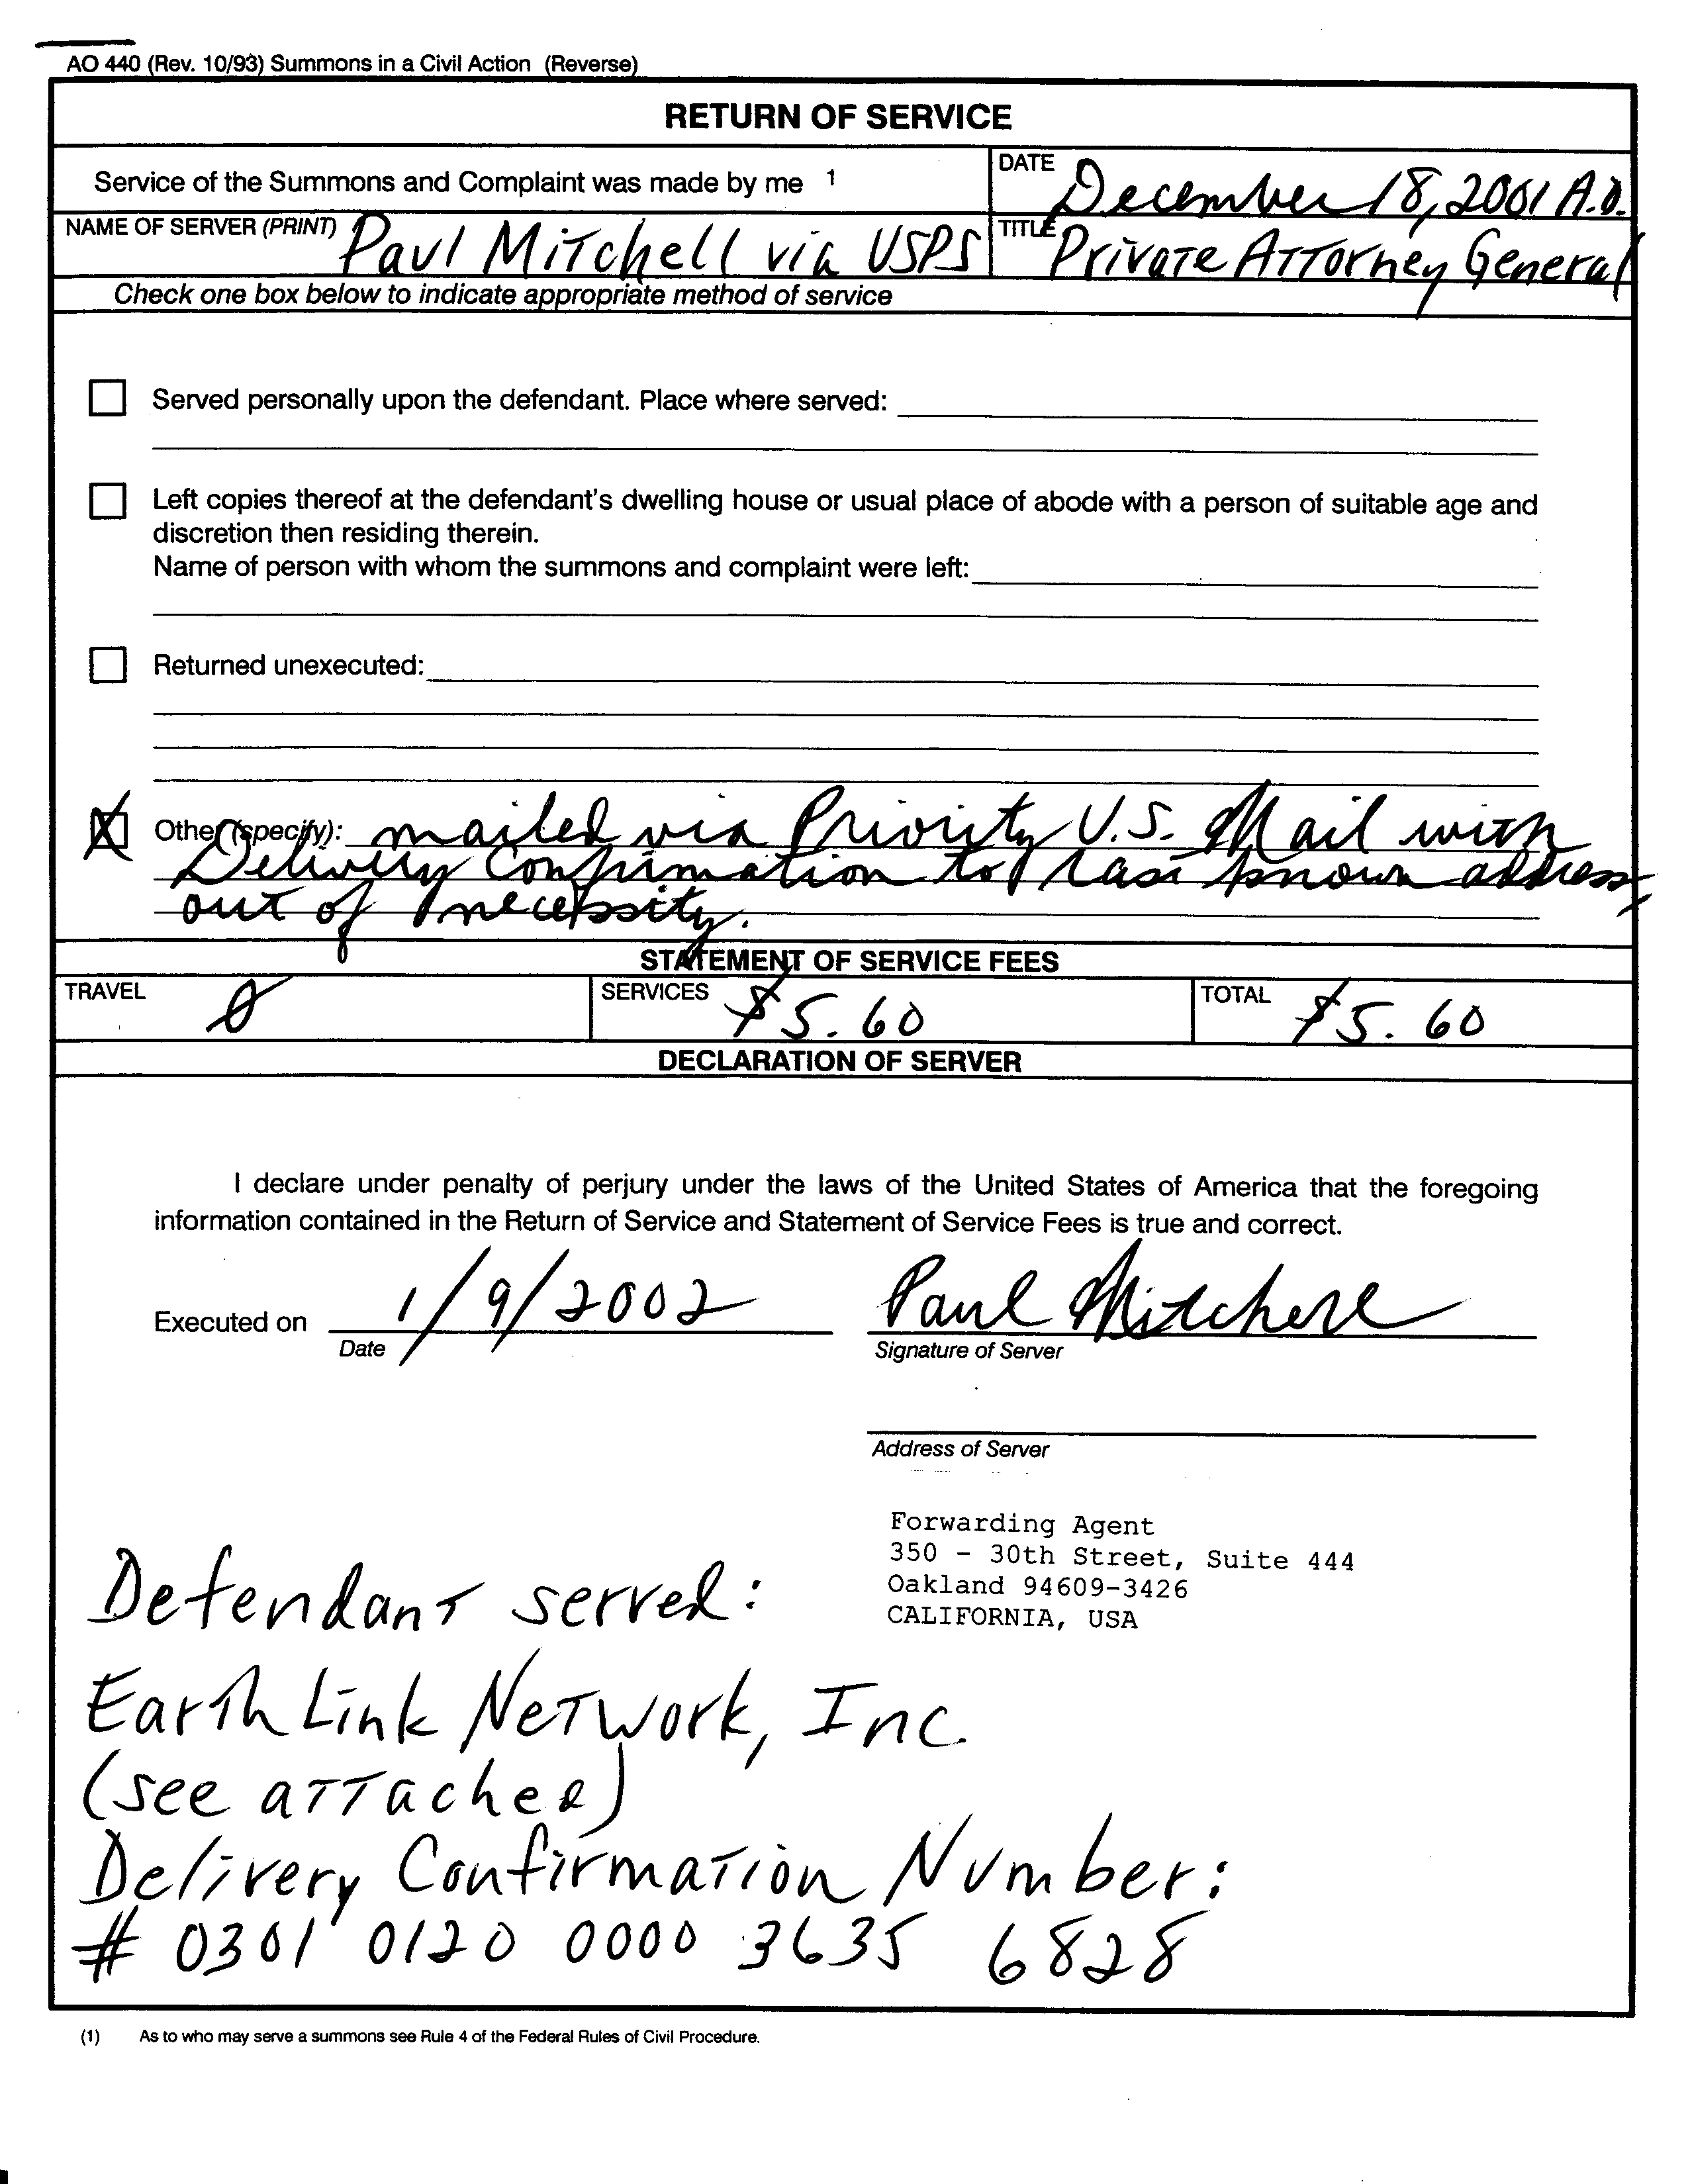 AO 440 (Rev. 10/93) Summons in a Civil Action (Reverse)
RETURN OF SERVICE
Service of the Summons and Complaint was made by me 1
DATE December 18, 2001 A.D.
NAME OF SERVER (PRINT) Paul Mitchell via USPS
TITLE Private Attorney General
Check one box below to indicate appropriate method of service
Served personally upon the defendant. Place where served:
Left copies thereof at the defendant's dwelling house or usual place of abode with a person of suitable age and
discretion then residing therein.
Name of person with whom the summons and complaint were left:
Returned unexecuted:
X Other (specify): mailed via Priority U.S. Mail with
Delivery Confirmation to last known address,
out of necessity.
STATEMENT OF SERVICE FEES
TRAVEL 0
SERVICES $5.60
TOTAL $5.60
DECLARATION OF SERVER
I declare under penalty of perjury under the laws of the United States of America that the foregoing
information contained in the Return of Service and Statement of Service Fees is true and correct.
Executed on 1/9/2002 Paul Mitchell
Date Signature of Server
Address of Server
Forwarding Agent
350 - 30th Street, Suite 444
Oakland 94609-3426
CALIFORNIA, USA
Defendant served:
EarthLink Network, Inc.
(see attached)
Delivery Confirmation Number:
# 0301 0120 0000 3635 6828
(1) As to who may serve a summons see Rule 4 of the Federal Rules of Civil Procedure.